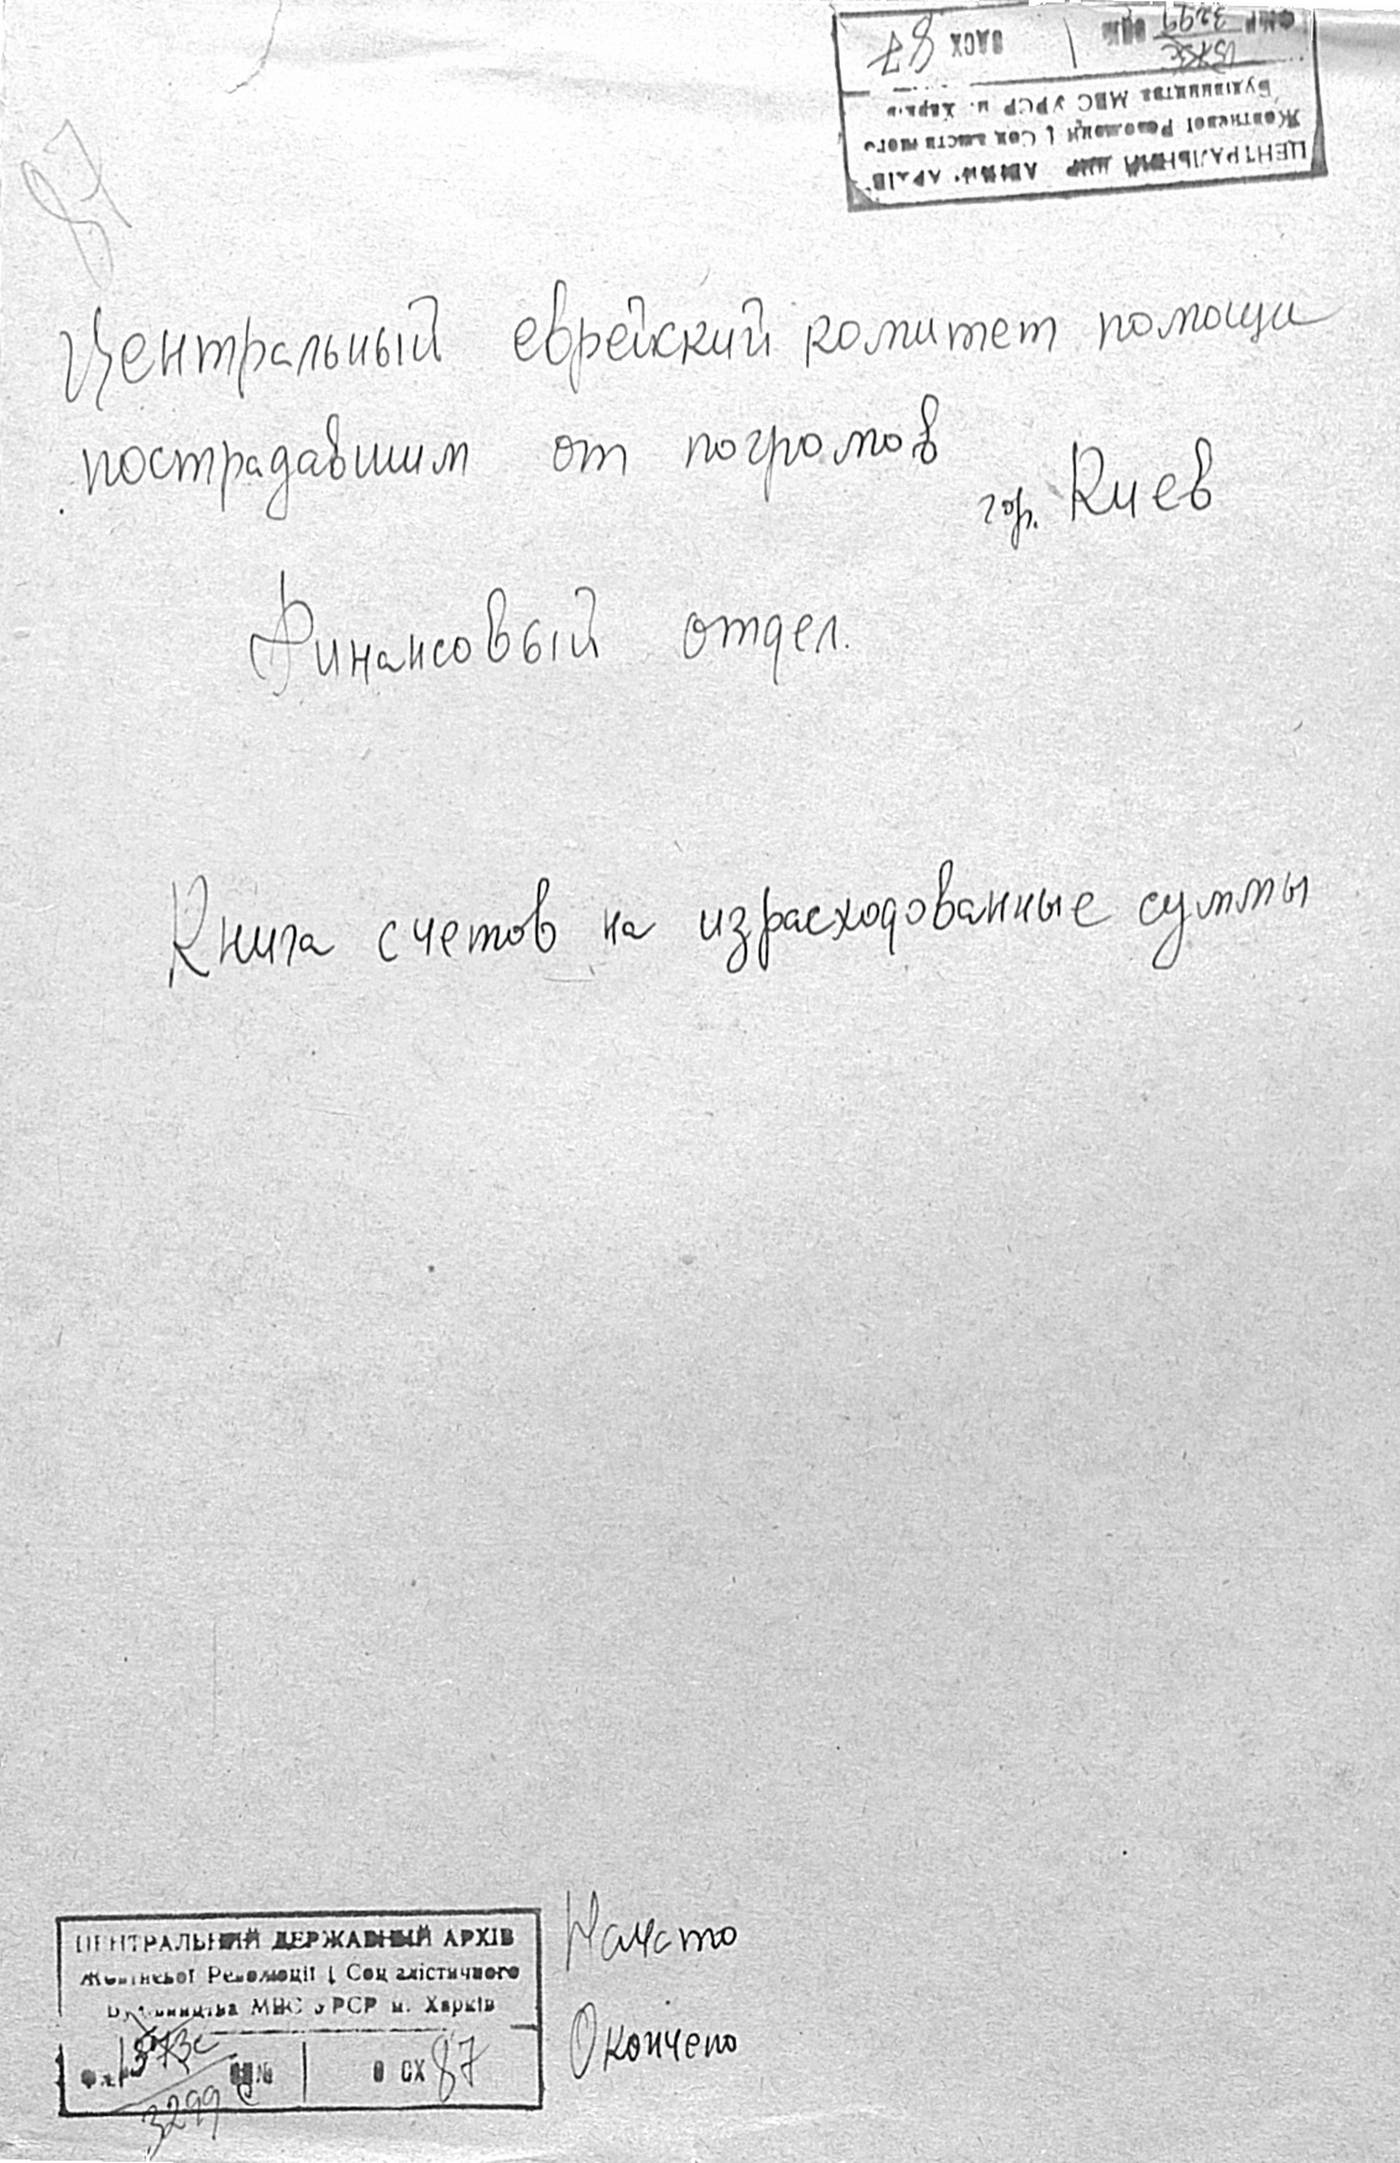 ЦЕНТРАЛЬНИЙ ДЕРЖАВНИЙ АРХІВ
Жовтневої Революції і Соціалістичного
Будівництва МВС УРСР м. Харків
3299
ОСХ 87
87
Центральный еврейский комитет помощи
пострадавшим от погромов
гор. Киев
Финансовый отдел.
Книга счетов на израсходованные суммы
Начато
Окончено
ЦЕНТРАЛЬНИЙ ДЕРЖАВНИЙ АРХІВ
Жовтневої Революції і Соціалістичного
Будівництва МВС УРСР м. Харків
О СХ 87
3299